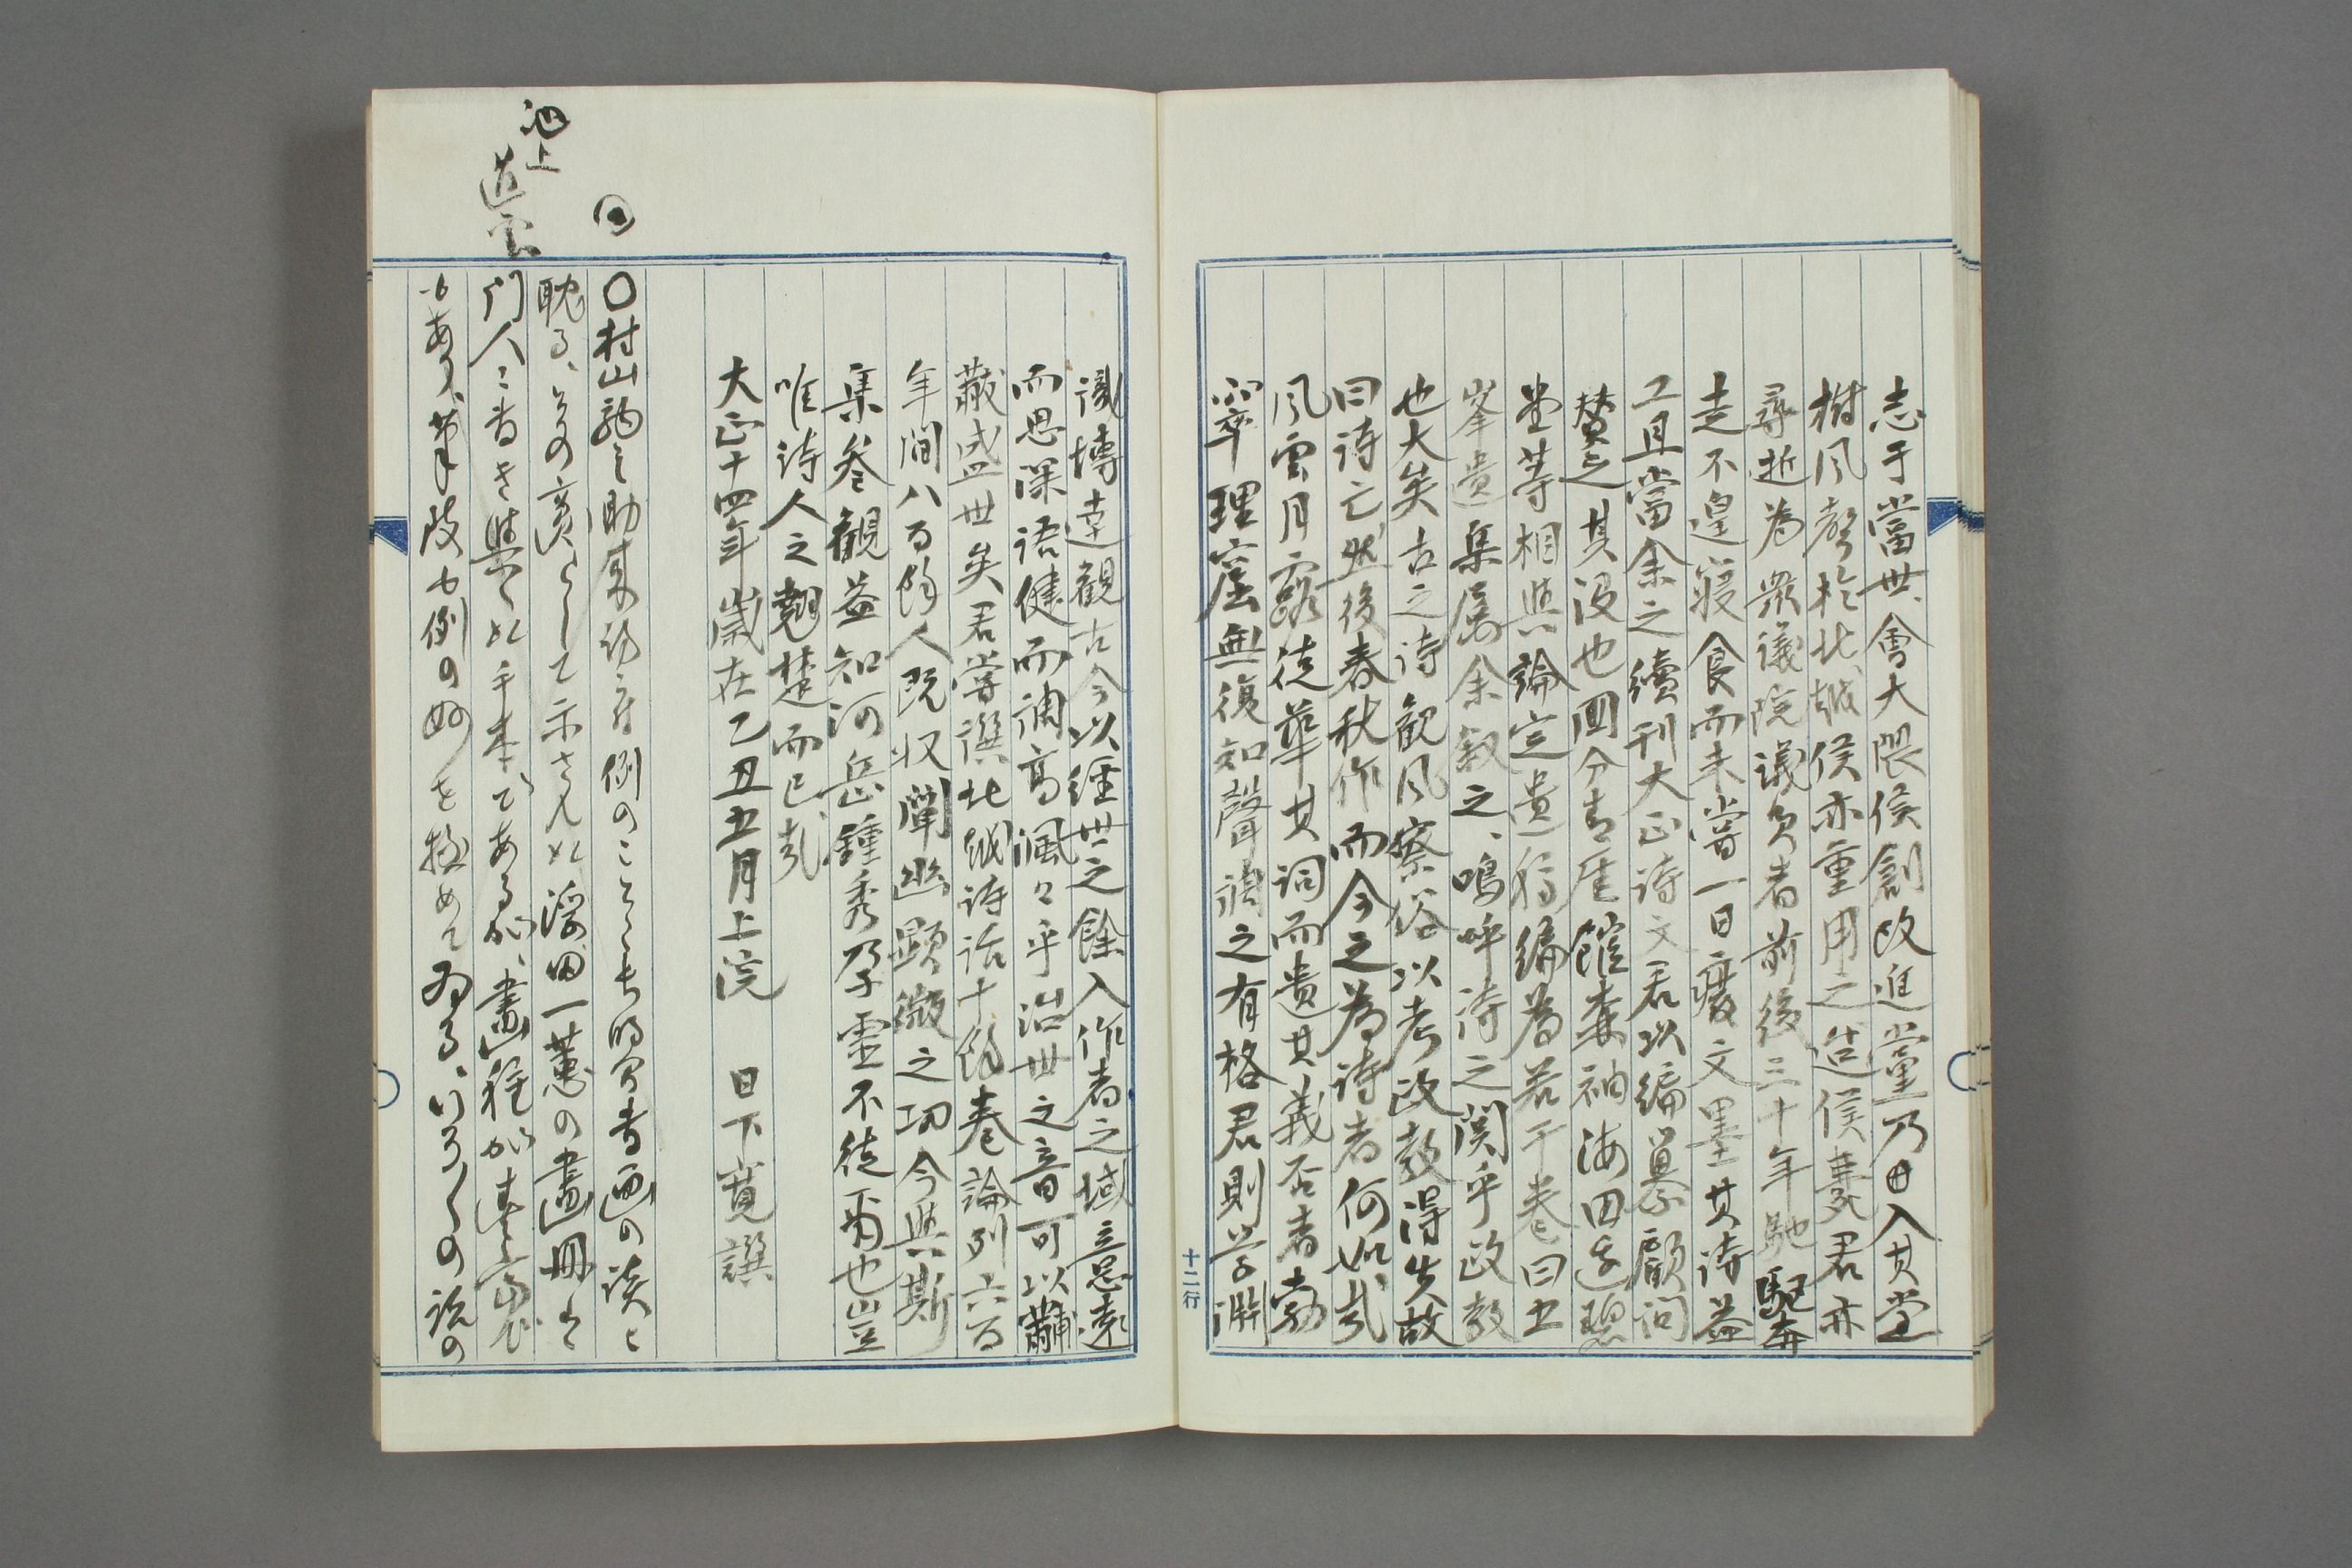 志于當世、會大隈侯創改進黨乃毌入其堂
樹風聲於北越侯亦重用之造侯薨君亦
尋逝為衆議院議員者前後三十年馳駆奔
走不遑寢食而未嘗一日癈文墨其詩益
工且當余之續刊大正詩文君以編纂顧問
賛之其没也囬分青厓館森袖海田邊碧
堂等相與論定遺稿編為若干巻曰五
峯遺集属余叙之、嗚呼詩之関乎政教
也大矣古之詩観風察俗以考政教得失故
曰詩亡然後春秋作而今之為詩者何如哉
風雲月露徒華其詞而遺其義否者勃
窣理窟無復知聲調之有格君則学淵
識博達観古今以経世之餘入作者之域意遠
而思深語健而調高渢々乎治世之音可以黼
黻盛世矣君嘗譔北越詩話十餘巻論列六百
年間八百餘人既收闡幽顕微之功今與斯
集叄観益知河岳鍾秀孕靈不徒爾也豈
唯詩人之翹楚而已哉
大正十四年歳在乙丑五月上浣 日下寛譔
池上
道雲
〇村山 之助来訪 例のこと 書画の談に
耽る、 の として示された 淡田一蕙の畫冊は
門人に書き與へた手本であるが、畫程が
あり、筆致も例の妙を極めてゐる、いろくの